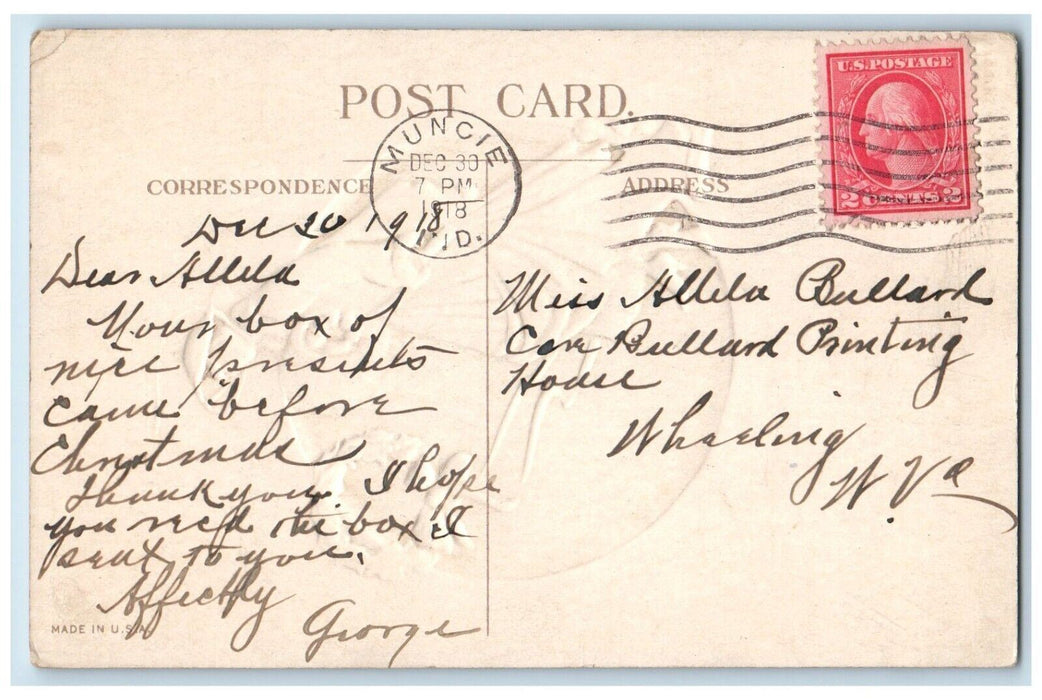 POST CARD.
CORRESPONDENCE
ADDRESS
MUNCIE
DEC 30
7 PM
1918
IND.
U.S. POSTAGE
2 CENTS 2
Dec 30 1918
Dear Allela
Your box of
nice presents
came before
Christmas
Thank you. I hope
you rec'd the box I
sent to you.
Affectly
George
MADE IN U.S.A.
Miss Allela Bullard
Care Bullard Printing
House
Wheeling
W. Va